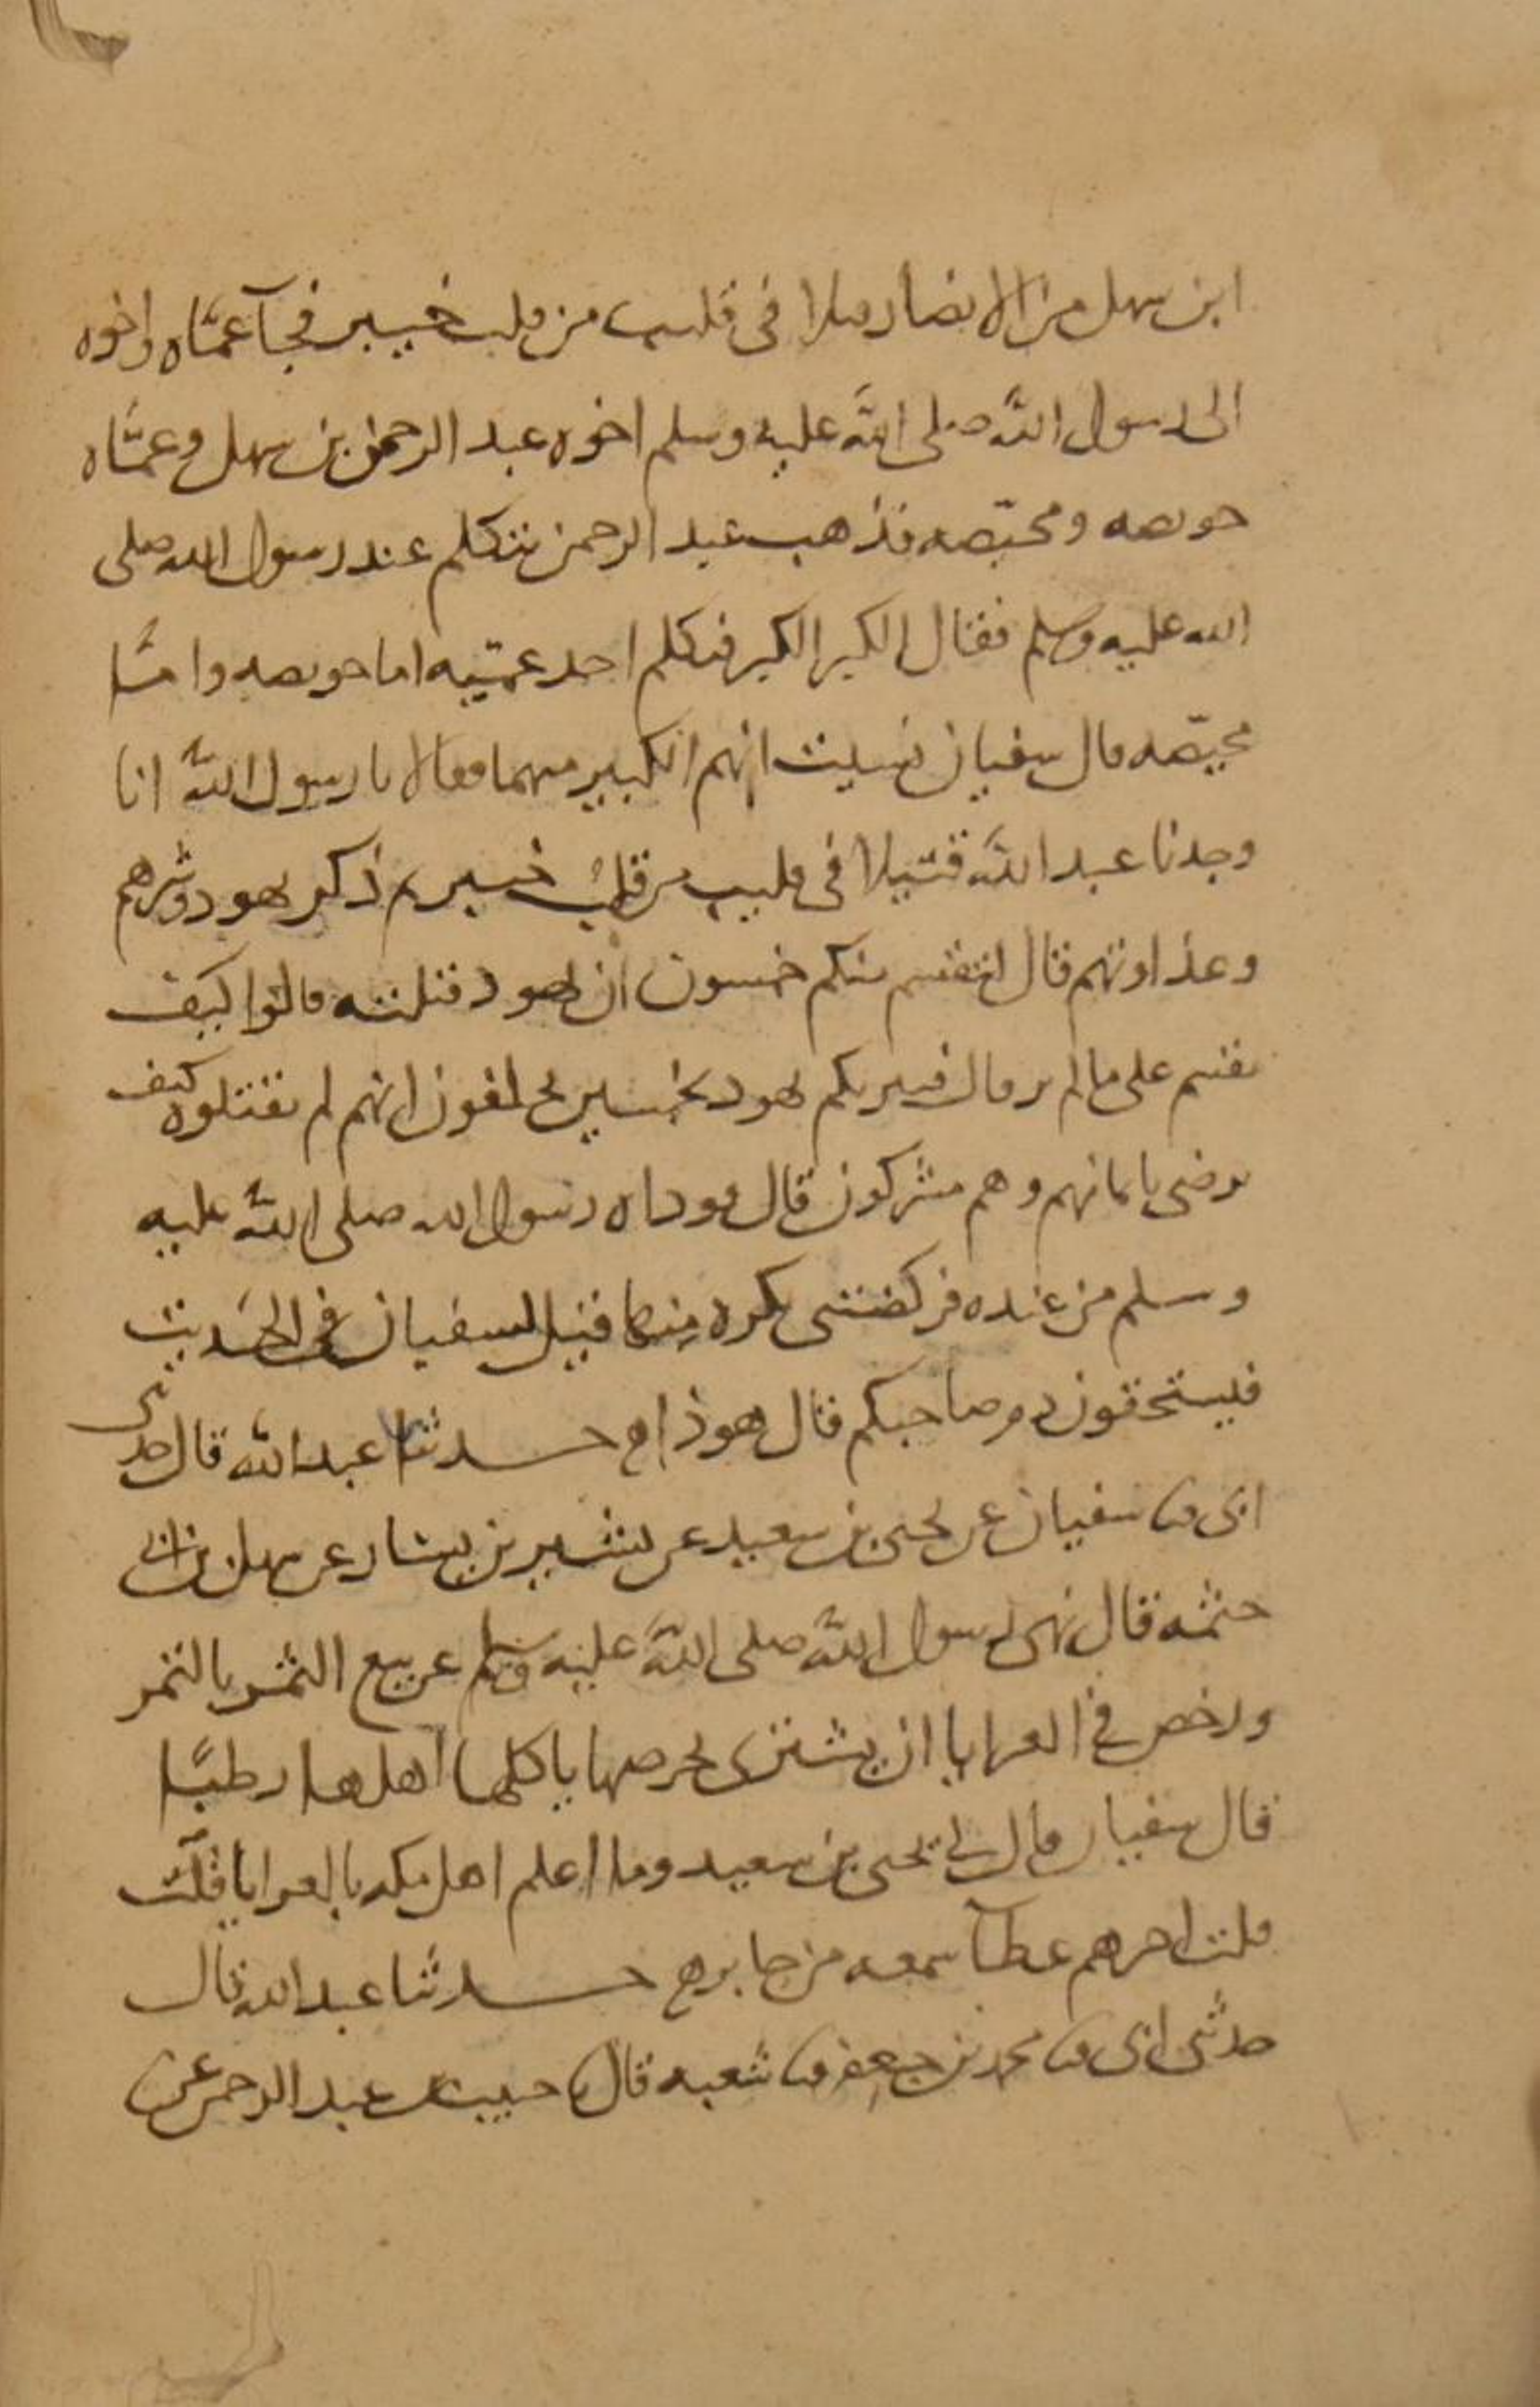 ابن سهل من الانصار قتيلا في قليب من قلب خيبر فجآ عمّاه واخوه
الى رسول الله صلى الله عليه وسلم اخوه عبد الرحمن بن سهل وعمّاه
حويصه ومحيّصه فذهب عبد الرحمن يتكلم عند رسول الله صلى
الله عليه وسلم فقال الكبر الكبر فتكلم احد عمّيه اما حويصه وامّا
محيّصه قال سفيان نسيت ايهم الكبير منهما فقالا يا رسول الله انا
وجدنا عبد الله قتيلا في قليب من قلب خيبر ثم ذكر يهود وشرهم
وعداوتهم قال ليقسم منكم خمسون ان يهود قتلته قالوا كيف
نقسم على ما لم نر قال فتبريكم يهود بخمسين يحلفون انهم لم يقتلوه كيف
نرضى بايمانهم وهم مشركون قال فوداه رسول الله صلى الله عليه
وسلم من عنده فركضتني بكرة منها قيل لسفيان في الحديث
فيستحقون دم صاحبكم قال هو ذا ح حدثنا عبد الله قال حدثني
ابي ثنا سفيان عن يحيى بن سعيد عن بشير بن يسار عن سهل بن ابي
حثمه قال نهى رسول الله صلى الله عليه وسلم عن بيع الثمر بالتمر
ورخص في العرايا ان يشترى بخرصها ياكلها اهلها رطبًا
قال سفيان قال لي يحيى بن سعيد وما اعلم اهل مكه بالعرايا قلت
قلت اخبرهم عطآ سمعه من جابر ح حدثنا عبد الله قال
حدثني ابي ثنا محمد بن جعفر ثنا شعبه قال خبيب بن عبد الرحمن عن